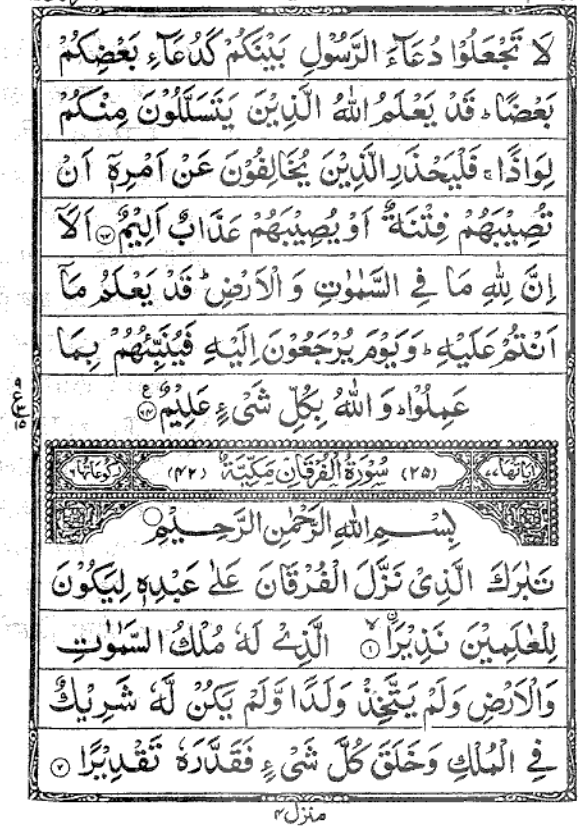 لَا تَجْعَلُوْا دُعَآءَ الرَّسُوْلِ بَيْنَكُمْ كَدُعَآءِ بَعْضِكُمْ
بَعْضًا ؕ قَدْ يَعْلَمُ اللّٰهُ الَّذِيْنَ يَتَسَلَّلُوْنَ مِنْكُمْ
لِوَاذًا ۚ فَلْيَحْذَرِ الَّذِيْنَ يُخَالِفُوْنَ عَنْ اَمْرِهٖۤ اَنْ
تُصِيْبَهُمْ فِتْنَةٌ اَوْ يُصِيْبَهُمْ عَذَابٌ اَلِيْمٌ ﴿۶۳﴾ اَلَاۤ
اِنَّ لِلّٰهِ مَا فِى السَّمٰوٰتِ وَ الْاَرْضِ ؕ قَدْ يَعْلَمُ مَاۤ
اَنْتُمْ عَلَيْهِ ؕ وَ يَوْمَ يُرْجَعُوْنَ اِلَيْهِ فَيُنَبِّئُهُمْ بِمَا
عَمِلُوْا ؕ وَ اللّٰهُ بِكُلِّ شَىْءٍ عَلِيْمٌ ﴿۶۴﴾ ع
اٰيَاتُهَا ۷۷ (۲۵) سُوْرَةُ الْفُرْقَانِ مَكِّيَّةٌ (۴۲) رُكُوْعَاتُهَا ۶
بِسْمِ اللّٰهِ الرَّحْمٰنِ الرَّحِيْمِ
تَبٰرَكَ الَّذِىْ نَزَّلَ الْفُرْقَانَ عَلٰى عَبْدِهٖ لِيَكُوْنَ
لِلْعٰلَمِيْنَ نَذِيْرَاۨ ۙ﴿۱﴾ الَّذِىْ لَهٗ مُلْكُ السَّمٰوٰتِ
وَالْاَرْضِ وَلَمْ يَتَّخِذْ وَلَدًا وَّلَمْ يَكُنْ لَّهٗ شَرِيْكٌ
فِى الْمُلْكِ وَخَلَقَ كُلَّ شَىْءٍ فَقَدَّرَهٗ تَقْدِيْرًا ﴿۲﴾
منزل ۴